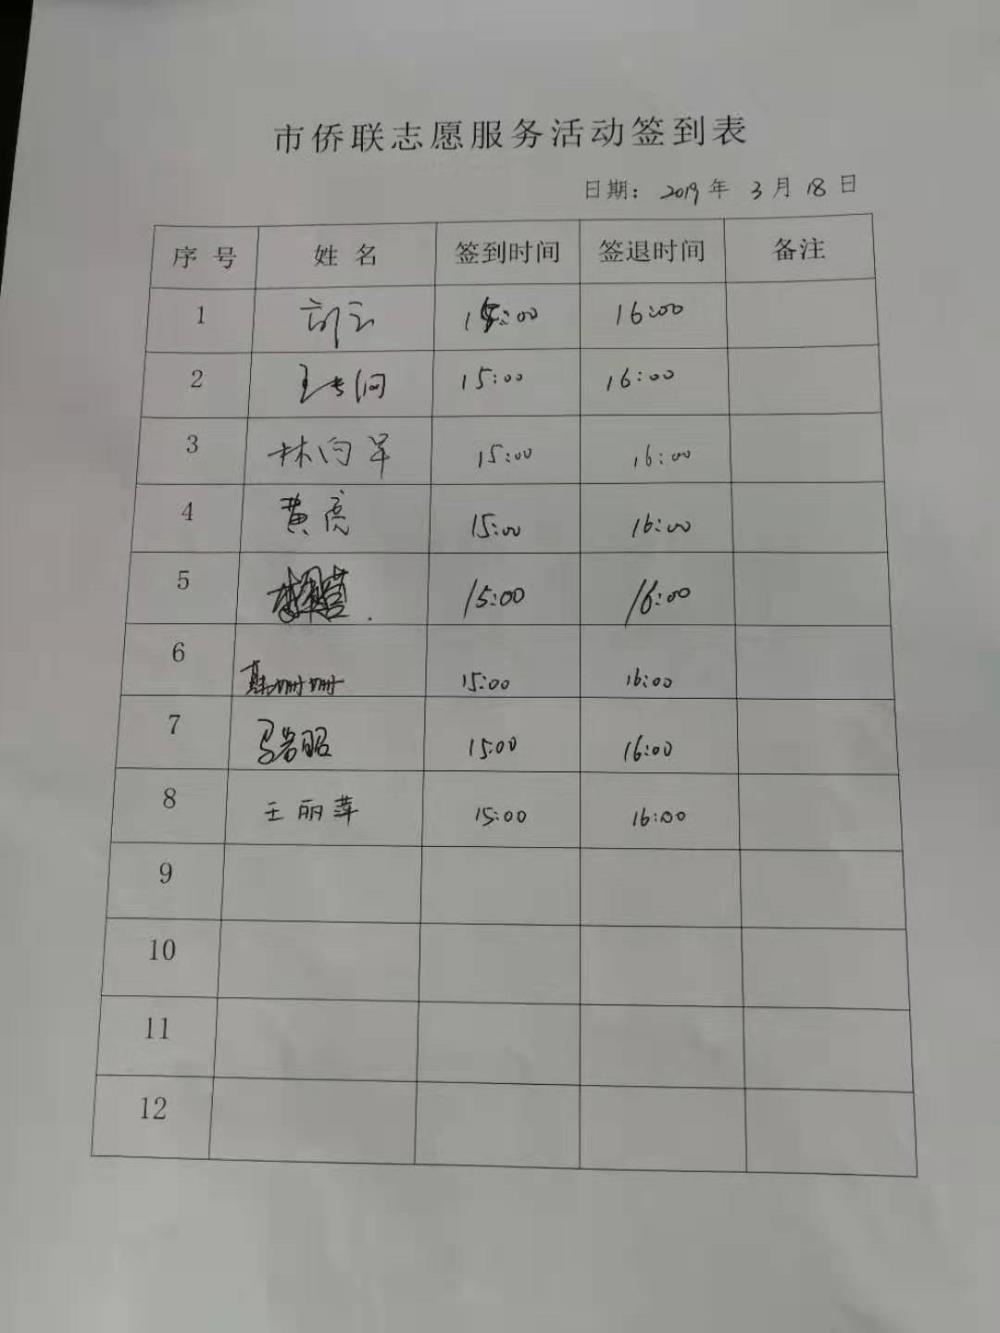 市侨联志愿服务活动签到表
日期： 2019 年 3 月 18 日
序号 姓名 签到时间 签退时间 备注
1 15:00 16:00
2 15:00 16:00
3 林向军 15:00 16:00
4 黄亮 15:00 16:00
5 15:00 16:00
6 姗姗 15:00 16:00
7 15:00 16:00
8 王丽萍 15:00 16:00
9
10
11
12